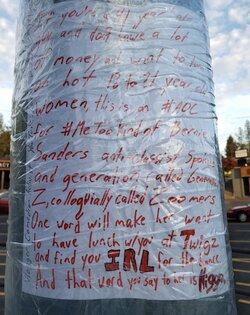 you're a year old
guy, and don't have a lot
of money and want to
hot 18 to 21 year old
women, this is an #AOC
for #MeToo Kind of Bernie
Sanders anti-classist
and generation called
Z, colloquially called Zoomers
One word will make her want
to have lunch w/you at Twigz
and find you IRL for the
And that word you say to her is